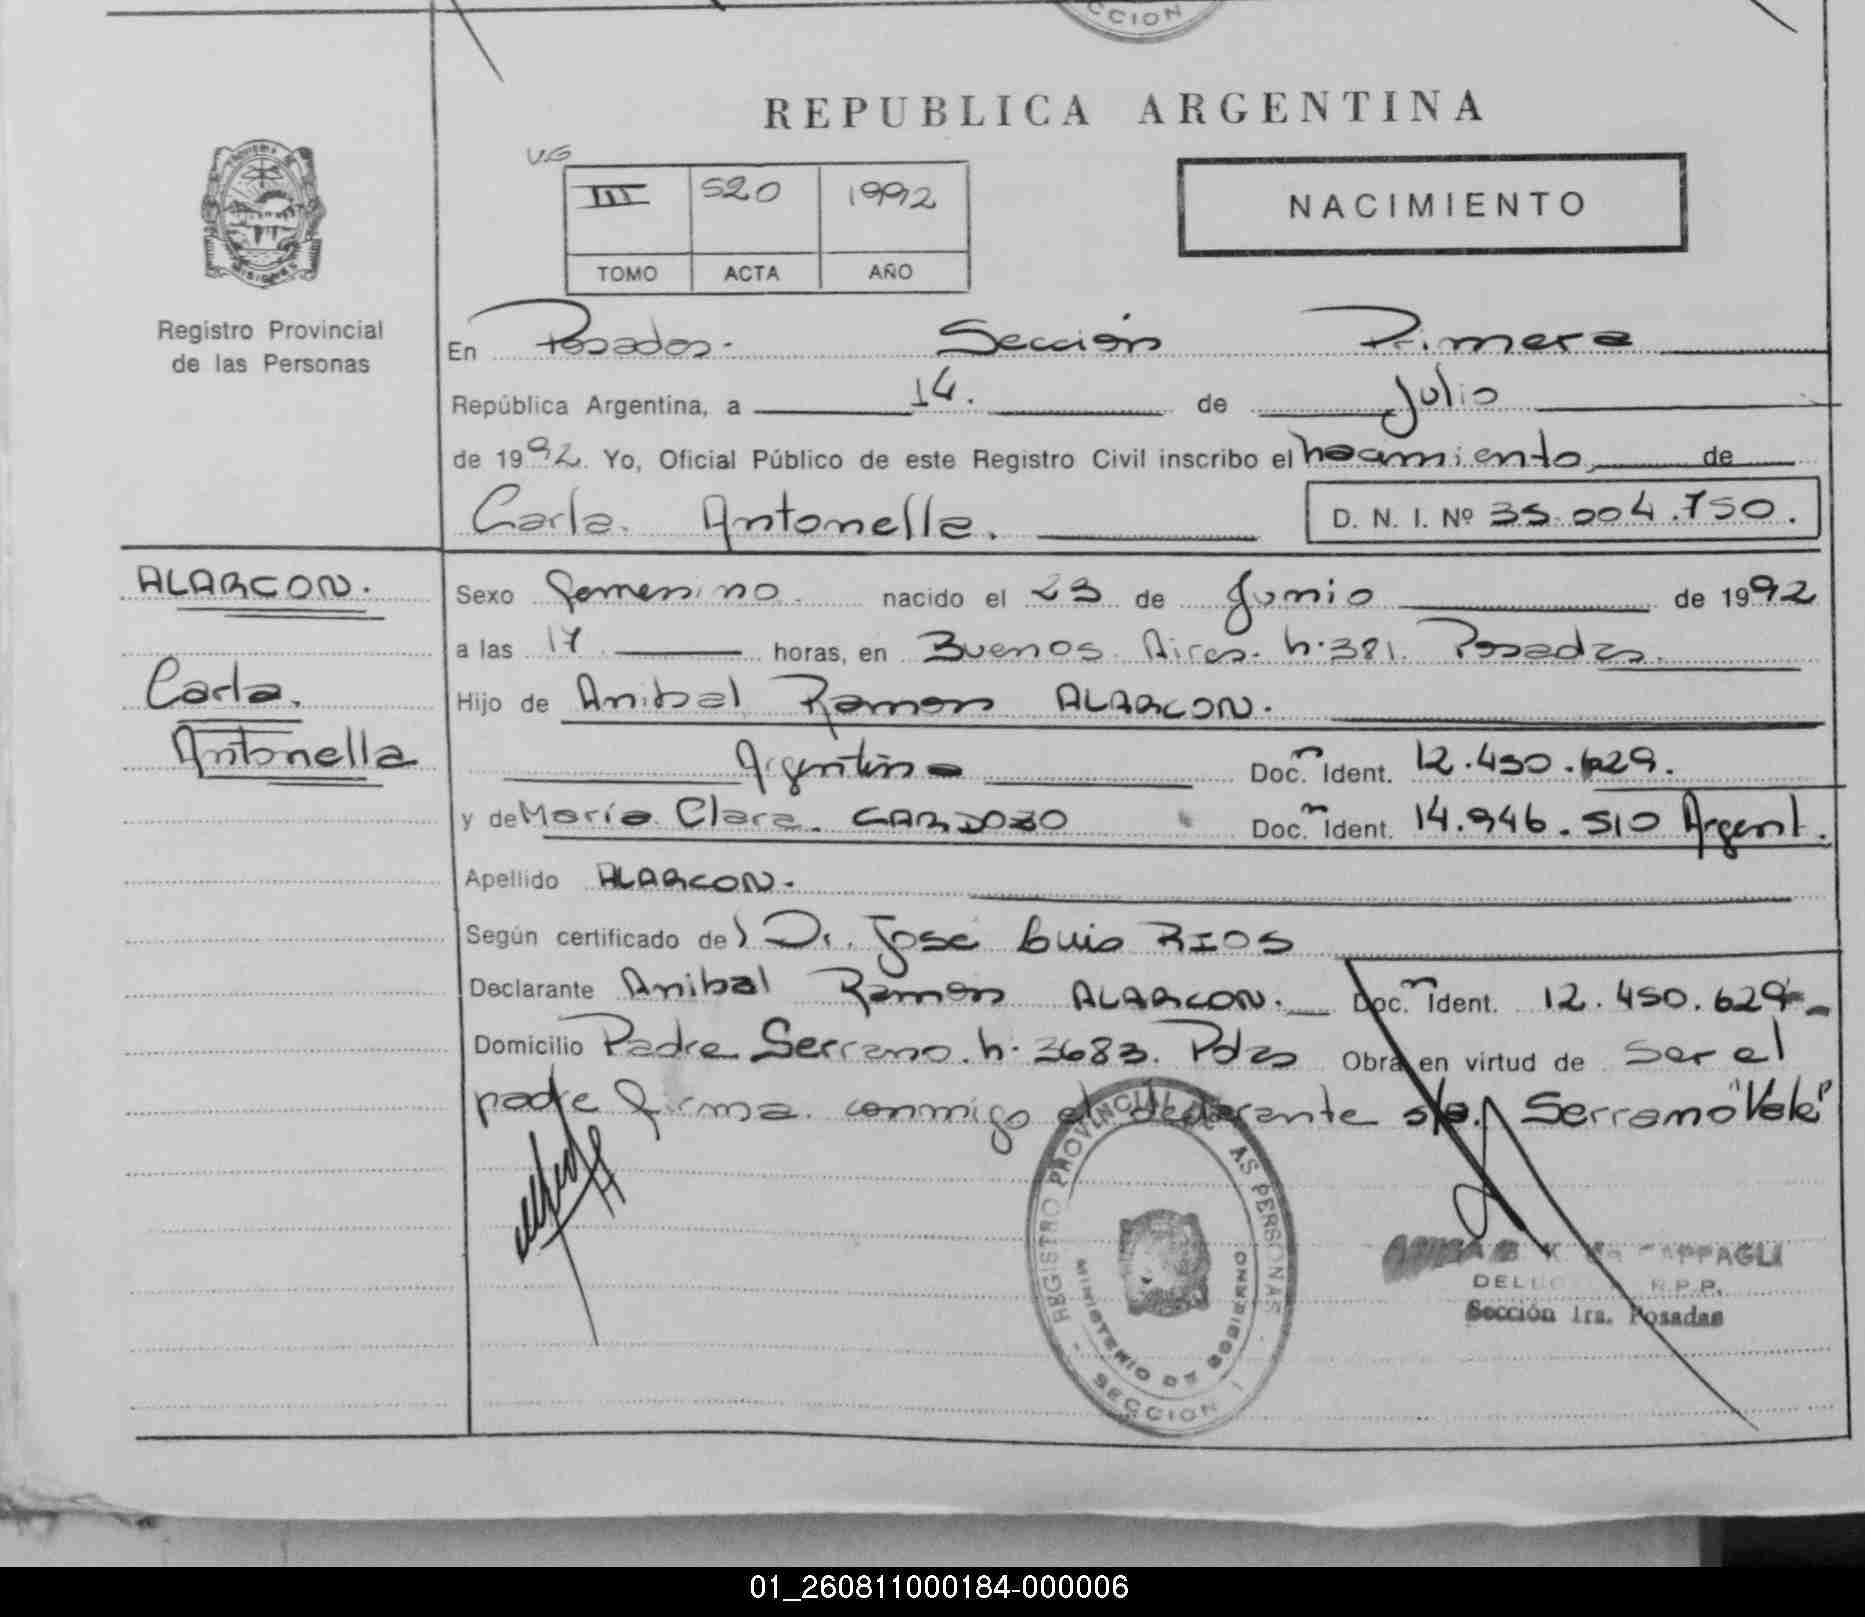 CCION
REPUBLICA ARGENTINA
V.G
III 520 1992
TOMO ACTA AÑO
NACIMIENTO
PROVINCIA DE
MISIONES
Registro Provincial
de las Personas
En Posadas. Sección Primera
República Argentina, a 14. de Julio
de 1992. Yo, Oficial Público de este Registro Civil inscribo el nacimiento de
Carla. Antonella.
D. N. I. Nº 35.004.750.
ALARCON.
Carla.
Antonella
Sexo femenino. nacido el 23 de Junio de 1992
a las 17 horas, en Buenos Aires. n. 381. Posadas.
Hijo de Anibal Ramon ALARCON.
Argentino Doc. n Ident. 12.450.629.
y de María Clara. CARDOZO Doc. n Ident. 14.946.510 Argent.
Apellido ALARCON.
Según certificado del Dr. José Luis RIOS
Declarante Anibal Ramon ALARCON. Doc. n Ident. 12.450.629
Domicilio Padre Serrano. n. 3683. Pdas Obra en virtud de ser el
padre firma conmigo el declarante s/a. Serrano "Vale"
REGISTRO PROVINCIAL DE LAS PERSONAS
MINISTERIO DE GOBIERNO
SECCION I
CAPPAGLI
R.P.P.
Sección 1ra. Posadas
01_260811000184-000006